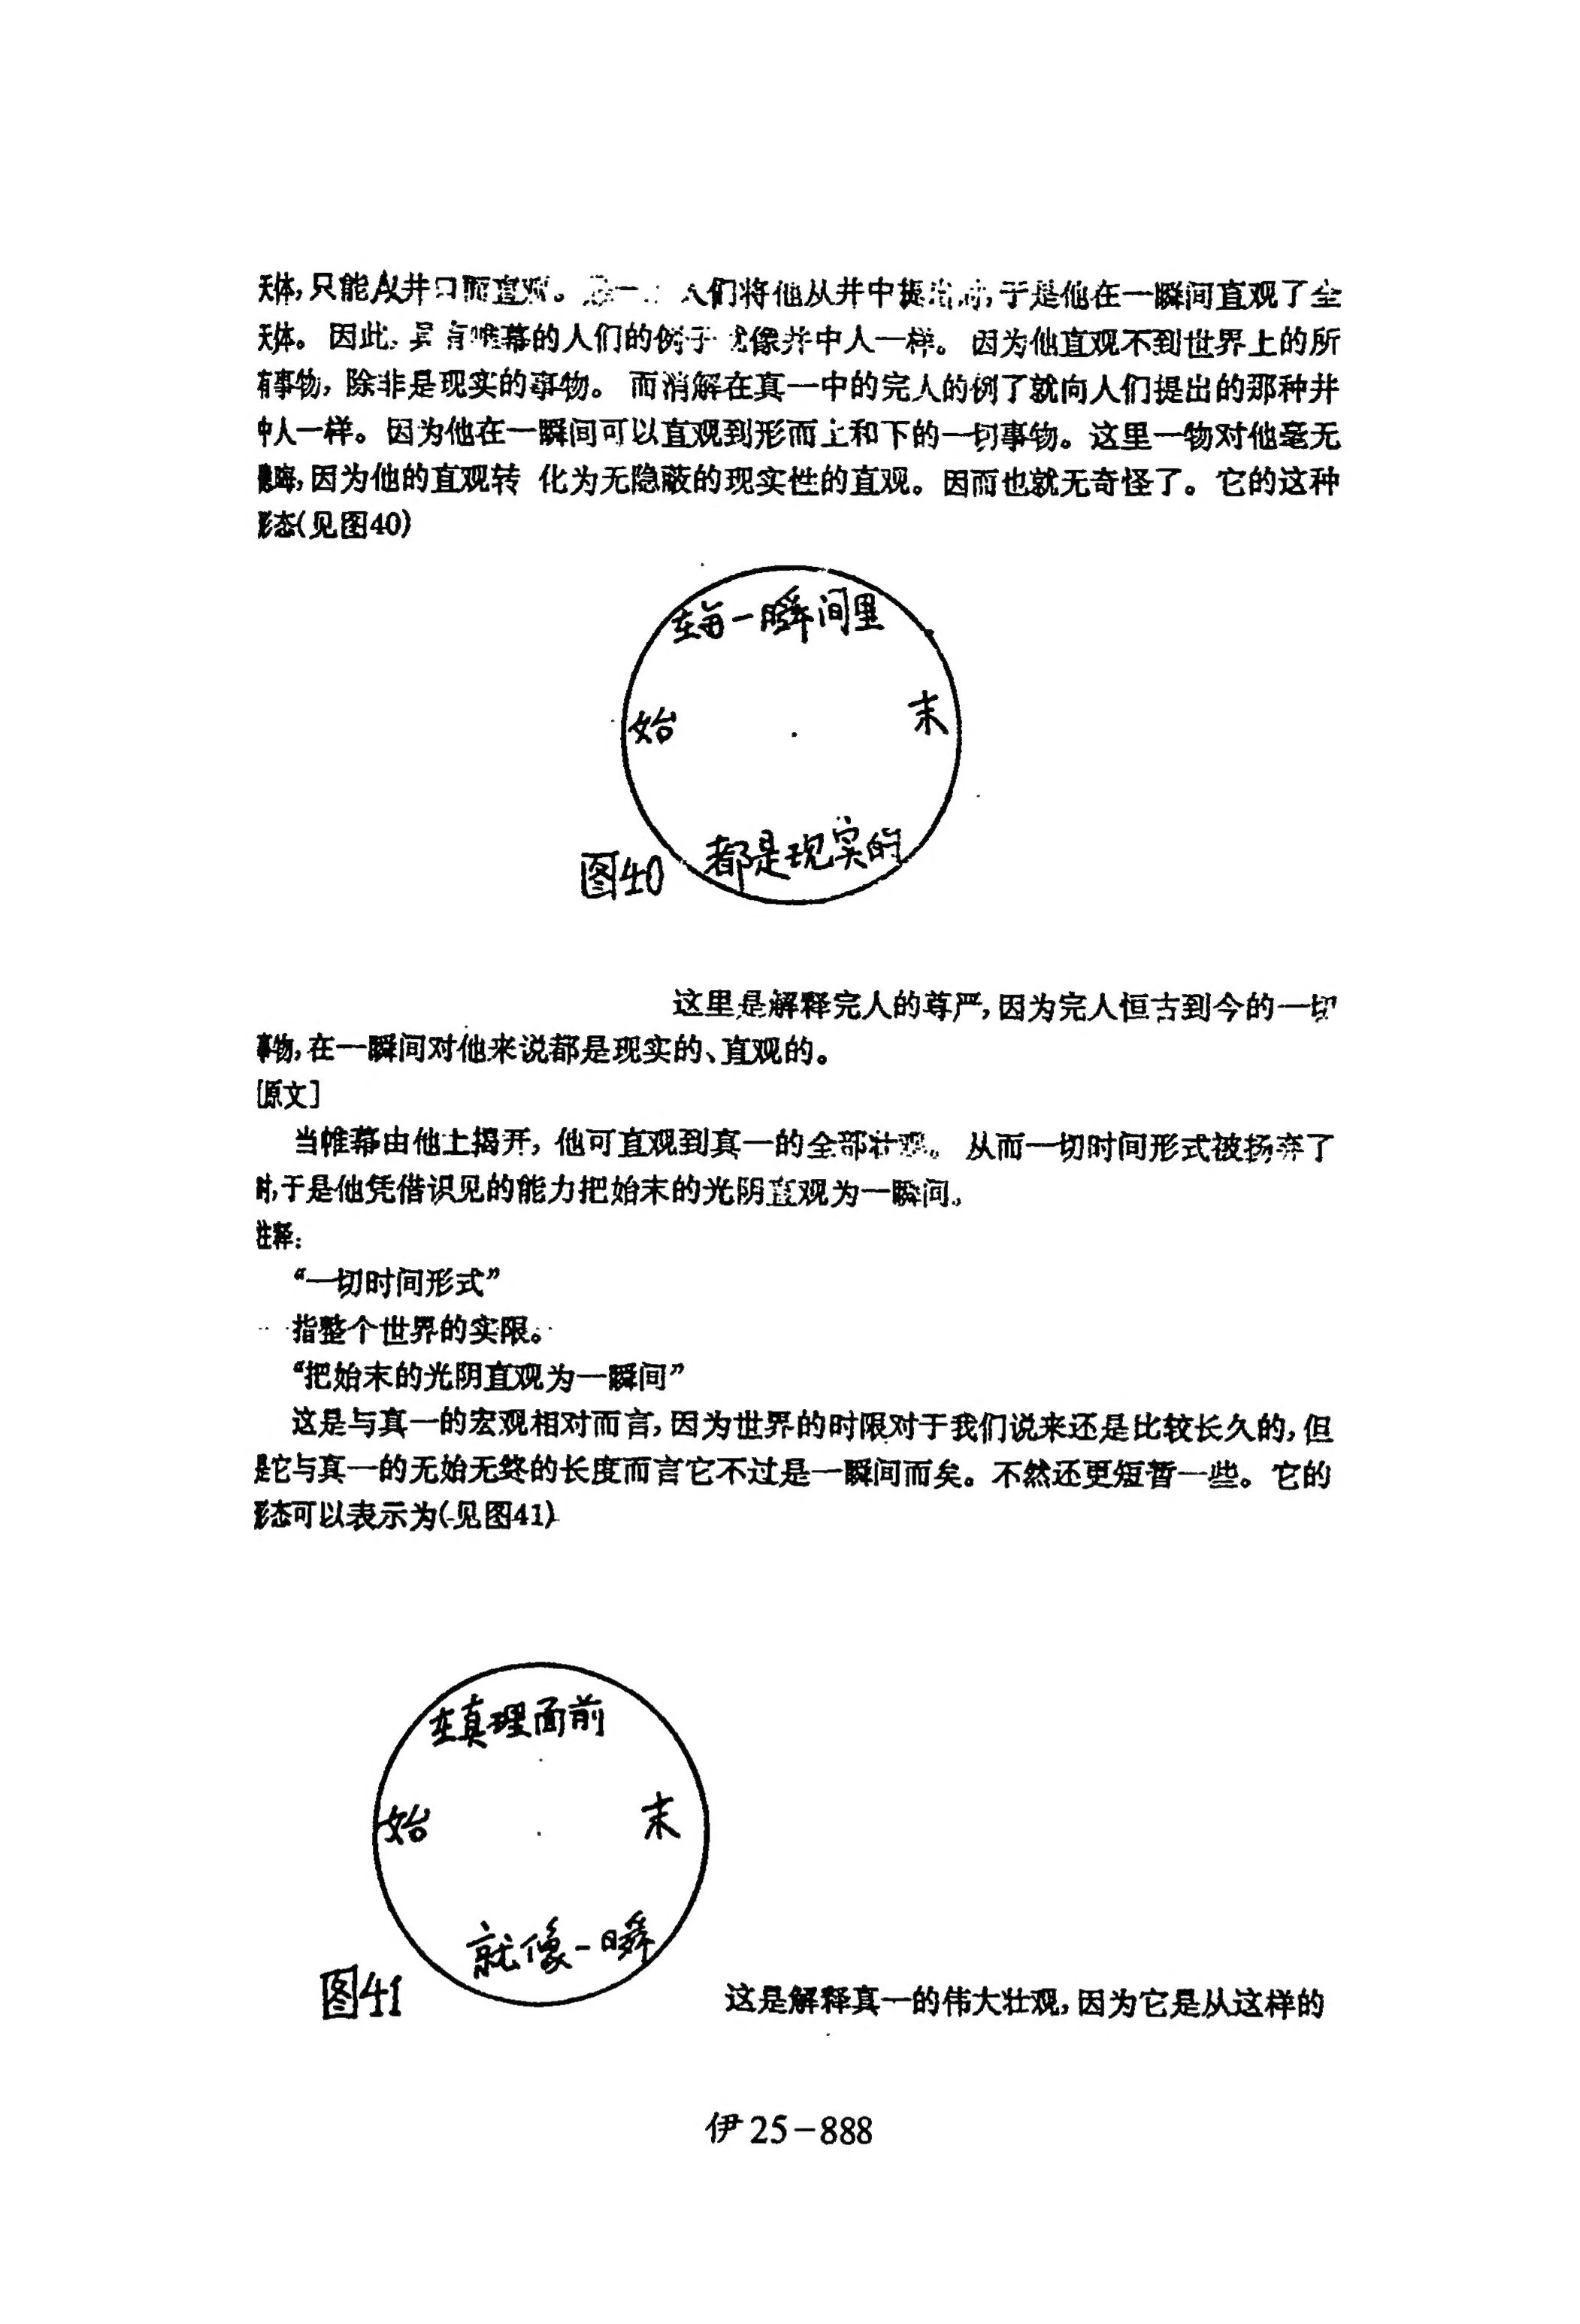 天体,只能从井口而直观。 一 人们将他从井中提 ,于是他在一瞬间直观了全
天体。因此,具有帷幕的人们的例子 像井中人一样。因为他直观不到世界上的所
有事物,除非是现实的事物。而消解在真一中的完人的例了就向人们提出的那种井
中人一样。因为他在一瞬间可以直观到形而上和下的一切事物。这里一物对他毫无
隐晦,因为他的直观转 化为无隐蔽的现实性的直观。因而也就无奇怪了。它的这种
形态(见图40)
在每一瞬间里
始 末
都是现实的
图40
这里是解释完人的尊严,因为完人恒古到今的一切
事物,在一瞬间对他来说都是现实的、直观的。
[原文]
当帷幕由他上揭开,他可直观到真一的全部壮观。从而一切时间形式被扬弃了
时,于是他凭借识见的能力把始末的光阴直观为一瞬间。
注释:
“一切时间形式”
指整个世界的实限。
“把始末的光阴直观为一瞬间”
这是与真一的宏观相对而言,因为世界的时限对于我们说来还是比较长久的,但
是它与真一的无始无终的长度而言它不过是一瞬间而矣。不然还更短暂一些。它的
形态可以表示为(见图41)
在真理面前
始 末
就像一瞬
图41
这是解释真一的伟大壮观,因为它是从这样的
伊25-888